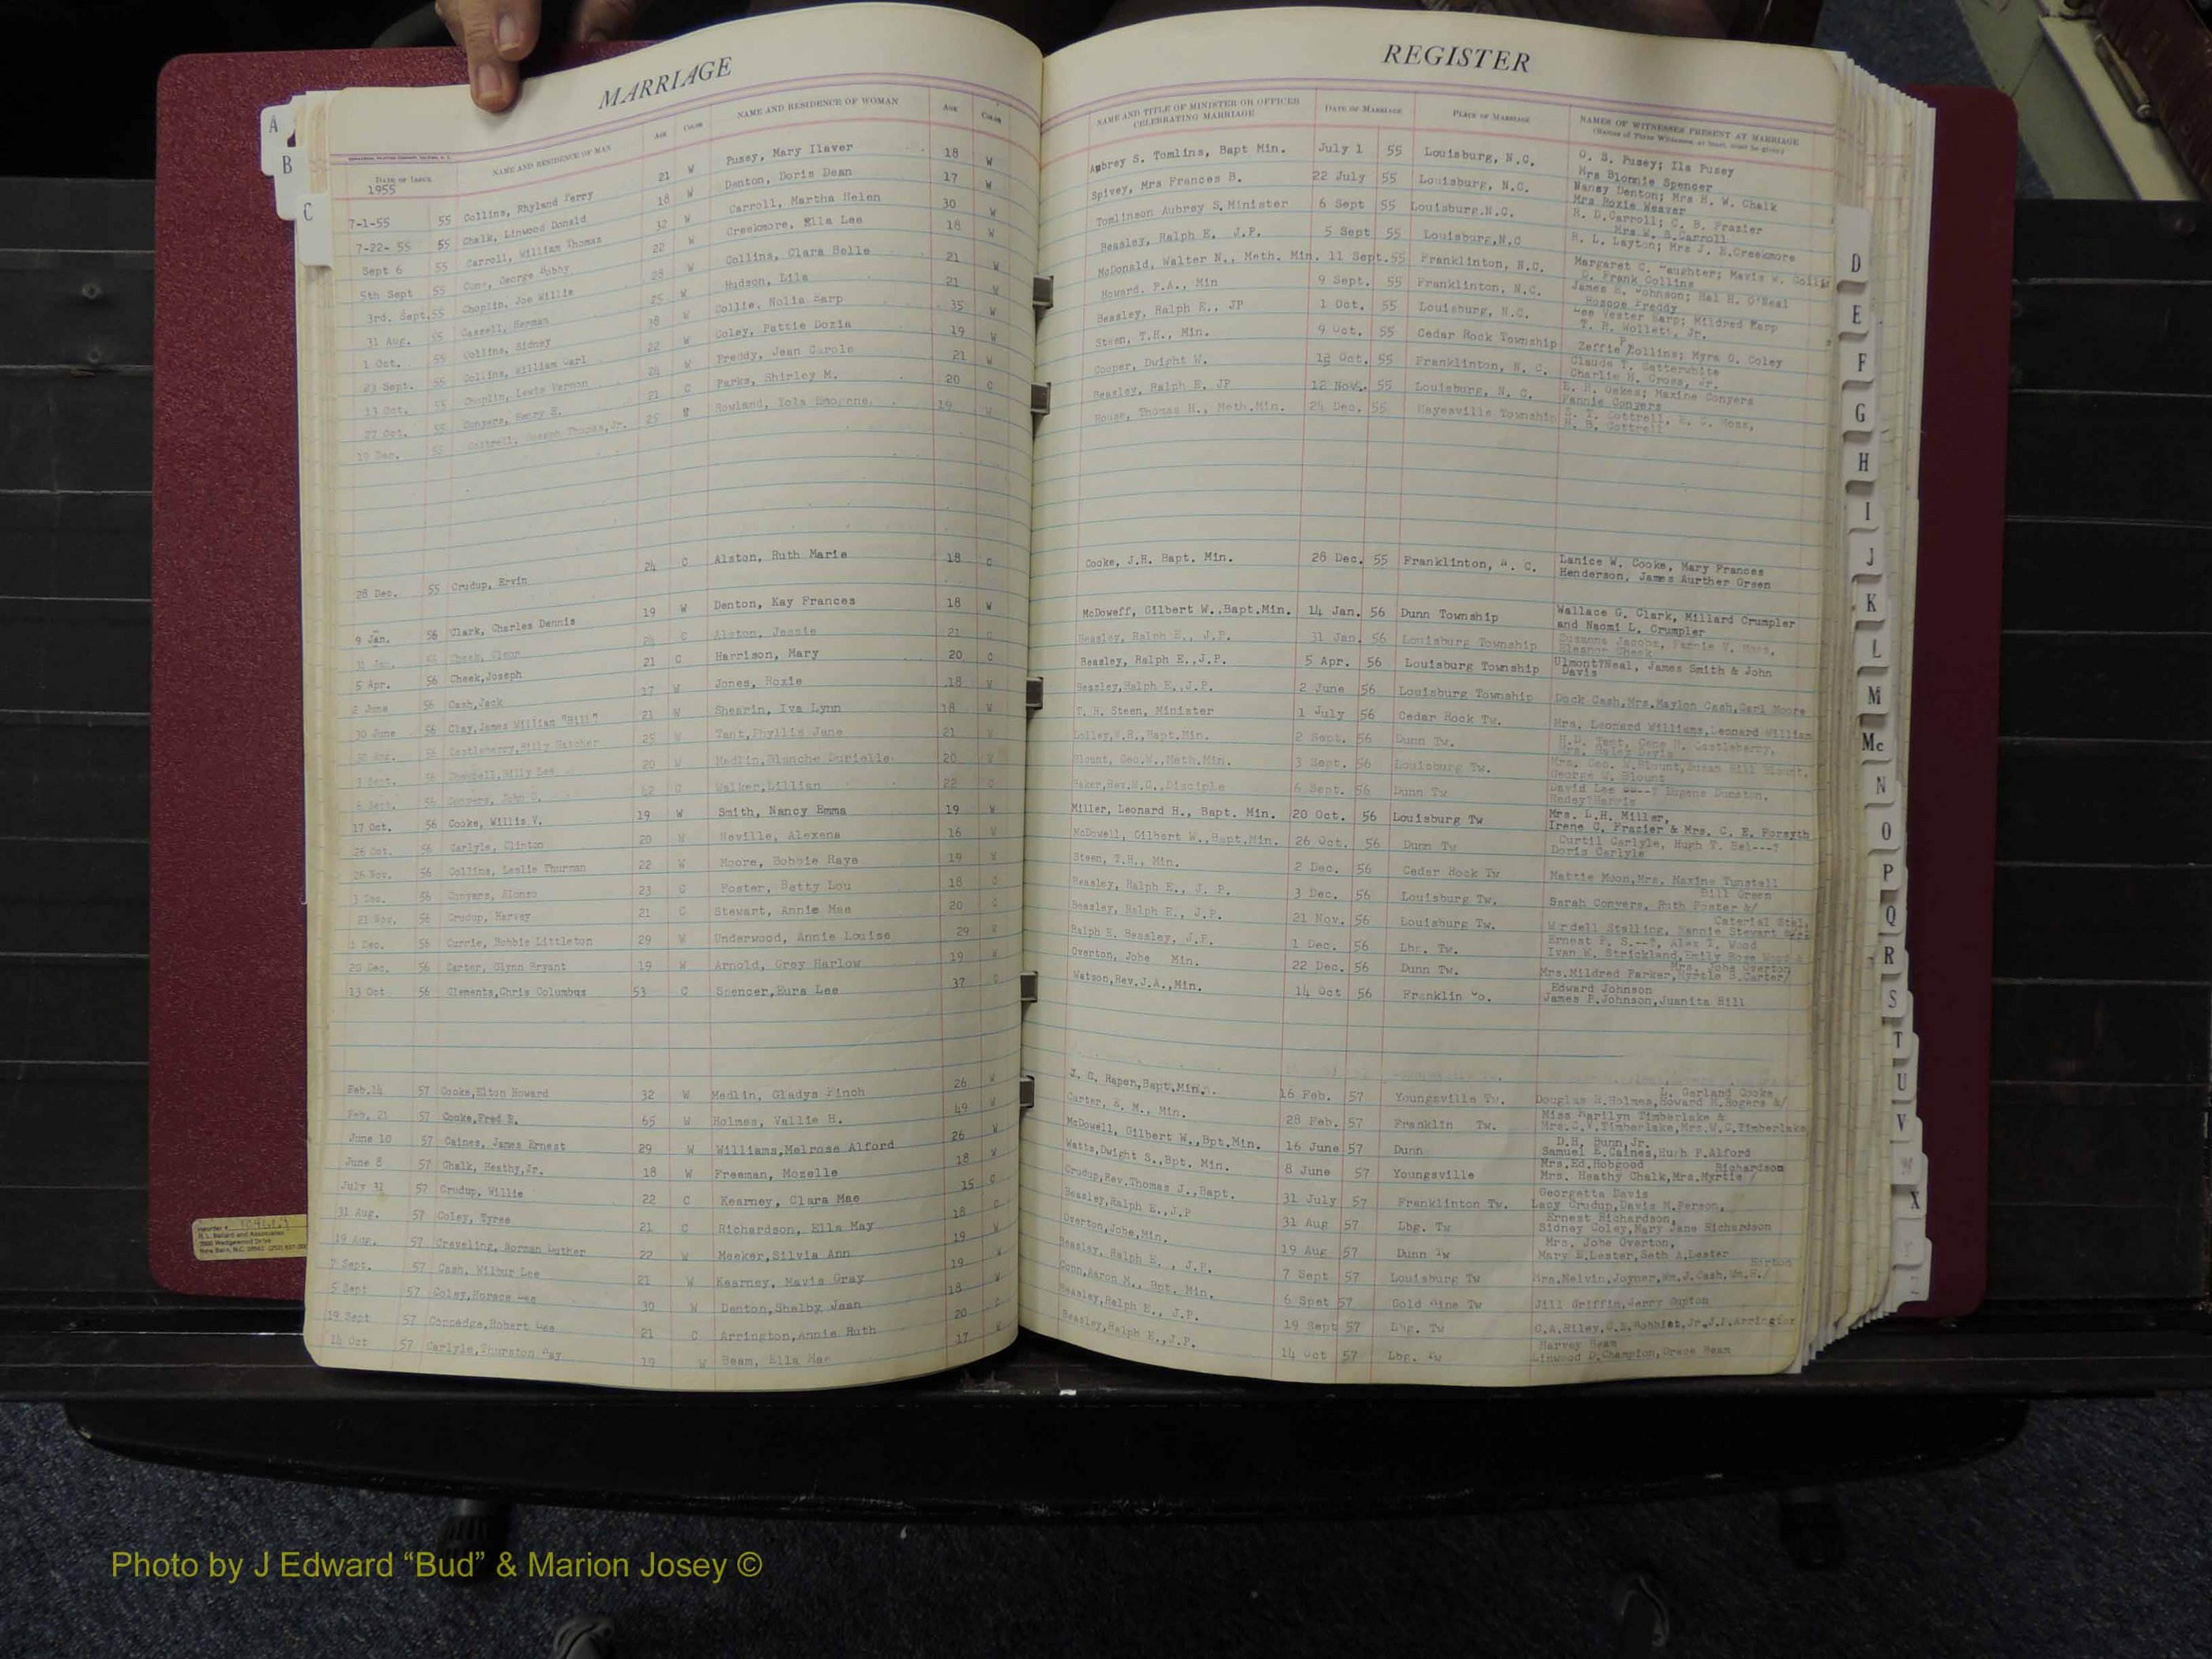 MARRIAGE REGISTER
DATE OF ISSUE NAME AND RESIDENCE OF MAN AGE COLOR NAME AND RESIDENCE OF WOMAN AGE COLOR NAME AND TITLE OF MINISTER OR OFFICER CELEBRATING MARRIAGE DATE OF MARRIAGE PLACE OF MARRIAGE NAMES OF WITNESSES PRESENT AT MARRIAGE
(Names of Three Witnesses, at least, must be given)
1955
7-1-55 55 Collins, Rhyland Kerry 21 W Pusey, Mary Ilaver 18 W Aubrey S. Tomlins, Bapt Min. July 1 55 Louisburg, N.C. O. S. Pusey; Ila Pusey
Mrs Blonnie Spencer
7-22-55 55 Chalk, Linwood Donald 18 W Denton, Doris Dean 17 W Spivey, Mrs Frances B. 22 July 55 Louisburg, N.C. Nancy Denton; Mrs H. W. Chalk
Mrs Roxie Weaver
Sept 6 55 Carroll, William Thomas 32 W Carroll, Martha Helen 30 W Tomlinson Aubrey S, Minister 6 Sept 55 Louisburg.N.C. R. D.Carroll; C. B. Frazier
Mrs W. S.Carroll
5th Sept 55 George Bobby 22 W Creekmore, Ella Lee 18 W Beasley, Ralph E. J.P. 5 Sept 55 Louisburg,N.C R. L. Layton; Mrs J. E.Creekmore
3rd. Sept. 55 Choplin, Joe Willie 28 W Collins, Clara Belle 21 W McDonald, Walter N., Meth. Min. 11 Sept.55 Franklinton, N.C. Margaret C. Mavis W. Collins
D. Frank Collins
31 Aug. 55 Cassell, Herman 25 W Hudson, Lila 21 W Howard, P.A., Min 9 Sept. 55 Franklinton, N.C. James E. Johnson; Hal H. O'Neal
Roscoe Freddy
1 Oct. 55 Collins, Sidney 38 W Collie, Nolia Earp 35 W Beasley, Ralph E., JP 1 Oct. 55 Louisburg, N.C. Lee Vester Earp; Mildred Earp
T. R. Wollett, Jr.
23 Sept. 55 Collins, William Carl 22 W Coley, Pattie Dozia 19 W Steen, T.H., Min. 9 Oct. 55 Cedar Rock Township Zeffie P Collins; Myra O. Coley
13 Oct. 55 Choplin, Lewis Vernon 24 W Preddy, Jean Carole 21 W Cooper, Dwight W. Oct. 55 Franklinton, N. C. Claude T. Satterwhite
Charlie H. Cross, Jr.
27 Oct. 55 Conyers, Henry S. 21 C Parks, Shirley M. 20 C Beasley, Ralph E. JP 12 Nov. 55 Louisburg, N. C. E. H. Oakes; Maxine Conyers
Fannie Conyers
19 Dec. 55 Cottrell, Joseph Thomas,Jr. 25 Rowland, Yola Emogene. 19 W Rouse, Thomas H., Meth.Min. 24 Dec. 55 Hayesville Township S. T. Cottrell, E. C. Moss,
H. B. Cottrell
28 Dec. 55 Crudup, Ervin 24 C Alston, Ruth Marie 18 C Cooke, J.H. Bapt. Min. 28 Dec. 55 Franklinton, N. C. Lanice W. Cooke, Mary Frances
Henderson, James Aurther Green
9 Jan. 56 Clark, Charles Dennis 19 W Denton, Kay Frances 18 W McDoweff, Gilbert W.,Bapt.Min. 14 Jan. 56 Dunn Township Wallace G. Clark, Millard Crumpler
and Naomi L. Crumpler
31 Jan. 56 Cheek, 24 C Alston, Jessie 21 C Beasley, Ralph E., J.P. 31 Jan. 56 Louisburg Township Susanne Jacobs, Fannie V. Moss,
Eleanor Cheek
5 Apr. 56 Cheek,Joseph 21 C Harrison, Mary 20 C Beasley, Ralph E.,J.P. 5 Apr. 56 Louisburg Township Ulmont?Neal, James Smith & John
Davis
2 June 56 Cash,Jack 17 W Jones, Roxie 18 W Beasley,Ralph E.,J.P. 2 June 56 Louisburg Township Dock Cash,Mrs.Maylon Cash,Carl Moore
30 June 56 Clay,James William "Bill" 21 W Shearin, Iva Lynn 18 W T. H. Steen, Minister 1 July 56 Cedar Rock Tw. Mrs. Leonard Williams,Leonard William
56 Castleberry,Billy Hatcher 25 W Tant,Phyllis Jane 21 W Lolley,W.R.,Bapt.Min. 2 Sept. 56 Dunn Tw. H.D. Tant, Gene H. Castleberry,
Mrs. Helen Davis
56 Billy Lee 20 W Medlin,Blanche Durielle 20 W Blount, Geo.W.,Meth.Min. 3 Sept. 56 Louisburg Tw. Mrs. Geo. W.Blount,Susan Hill Blount,
George W. Blount
56 Conyers, John O. 42 C Walker,Lillian 22 C Baker,Rev.H.C.,Disciple 6 Sept. 56 Dunn Tw David Lee ---? Eugene Dunston,
Redey?Harris
17 Oct. 56 Cooke, Willis V. 19 W Smith, Nancy Emma 19 W Miller, Leonard H., Bapt. Min. 20 Oct. 56 Louisburg Tw Mrs. L.H. Miller,
Irene C. Frazier & Mrs. C. E. Forsyth
26 Oct. 56 Carlyle, Clinton 20 W Neville, Alexena 16 W McDowell, Gilbert W.,Bapt.Min. 26 Oct. 56 Dunn Tw Curtil Carlyle, Hugh T. Bel---?
Doris Carlyle
26 Nov. 56 Collins, Leslie Thurman 22 W Moore, Bobbie Raye 19 W Steen, T.H., Min. 2 Dec. 56 Cedar Rock Tw Mattie Moon,Mrs. Maxine Tunstell
3 Dec. 56 Conyers, Alonzo 23 C Foster, Betty Lou 18 C Beasley, Ralph E., J. P. 3 Dec. 56 Louisburg Tw. Bill Green
Sarah Conyers, Ruth Foster &/
21 Nov. 56 Crudup, Harvey 21 C Stewart, Annie Mae 20 C Beasley, Ralph E., J.P. 21 Nov. 56 Louisburg Tw. Caterial
Stalling, Nannie Stewart
1 Dec. 56 Currie, Bobbie Littleton 29 W Underwood, Annie Louise 29 W Ralph E. Beasley, J.P. 1 Dec. 56 Lbg. Tw. Ernest P. S.--?, Alex T. Wood
Ivan W. Strickland,Emily Rose Wood &
20 Dec. 56 Carter, Glynn Bryant 19 W Arnold, Grey Harlow 19 W Overton, Jobe Min. 22 Dec. 56 Dunn Tw. Mrs. Jobe Overton
Mrs.Mildred Parker,Myrtle B.Carter/
13 Oct 56 Clements,Chris Columbus 53 C Spencer,Eura Lee 37 C Watson,Rev.J.A.,Min. 14 Oct 56 Franklin Co. Edward Johnson
James P.Johnson,Juanita Hill
Feb.14 57 Cooke,Elton Howard 32 W Medlin, Gladys Finch 26 W J. C. Rapen,Bapt.Min. 16 Feb. 57 Youngsville Tw. L. Garland Cooke
Douglas R.Holmes,Howard M.Rogers &/
Feb. 21 57 Cooke,Fred E. 65 W Holmes, Vallie H. 49 W Carter, E. M., Min. 28 Feb. 57 Franklin Tw. Miss Marilyn Timberlake &
Mrs.C.V.Timberlake,Mrs.W.C.Timberlake
June 10 57 Caines, James Ernest 29 W Williams,Melrose Alford 26 W McDowell, Gilbert W.,Bpt.Min. 16 June 57 Dunn D.H. Bunn,Jr.
Samuel E.Caines,Hurb P.Alford
June 8 57 Chalk, Heathy,Jr. 18 W Freeman, Mozelle 18 W Watts,Dwight S.,Bpt. Min. 8 June 57 Youngsville Mrs.Ed.Hobgood Richardson
Mrs. Heathy Chalk,Mrs.Myrtle /
July 31 57 Crudup, Willie 22 C Kearney, Clara Mae 15 C Crudup,Rev.Thomas J.,Bapt. 31 July 57 Franklinton Tw. Georgetta Davis
Lacy Crudup,Davis M.Person,
31 Aug. 57 Coley, Tyree 21 C Richardson, Ella May 18 C Beasley,Ralph E.,J.P 31 Aug 57 Lbg. Tw Ernest Richardson,
Sidney Coley,Mary Jane Richardson
19 Aug. 57 Creveling, Norman Luther 22 W Meeker,Silvia Ann 19 W Overton,Jobe,Min. 19 Aug 57 Dunn Tw Mrs. Jobe Overton,
Mary E.Lester,Seth A.Lester
7 Sept. 57 Cash, Wilbur Lee 21 W Kearney, Mavis Gray 19 W Beasley, Ralph E. , J.P. 7 Sept 57 Louisburg Tw Horton
Mrs.Melvin,Joyner,Wm.J.Cash,Wm.H./
5 Sept 57 Coley,Horace Lee 30 W Denton,Shelby Jean 18 W Conn,Aaron M., Bpt. Min. 6 Spet 57 Gold Mine Tw Jill Griffin,Jerry Cupton
19 Sept 57 Coppedge,Robert Lee 21 C Arrington,Annie Ruth 20 C Beasley,Ralph E., J.P. 19 Sept 57 Lbg. Tw C.A.Riley,C.E.Bobbitt,Jr.J.P.Arrington
14 Oct 57 Carlyle,Thurston Ray 19 W Beam, Ella Mae 17 W Beasley,Ralph E.,J.P. 14 Oct 57 Lbg. Tw Harvey Beam
Linwood D.Champion,Grace Beam
A
B
C
D
E
F
G
H
I
J
K
L
M
Mc
N
O
P
Q
R
S
T
U
V
W
X
Y
Z
Reorder #
H.L. Ballard and Associates
Wedgewood Drive
New Bern, N.C. 28562
Photo by J Edward “Bud” & Marion Josey ©